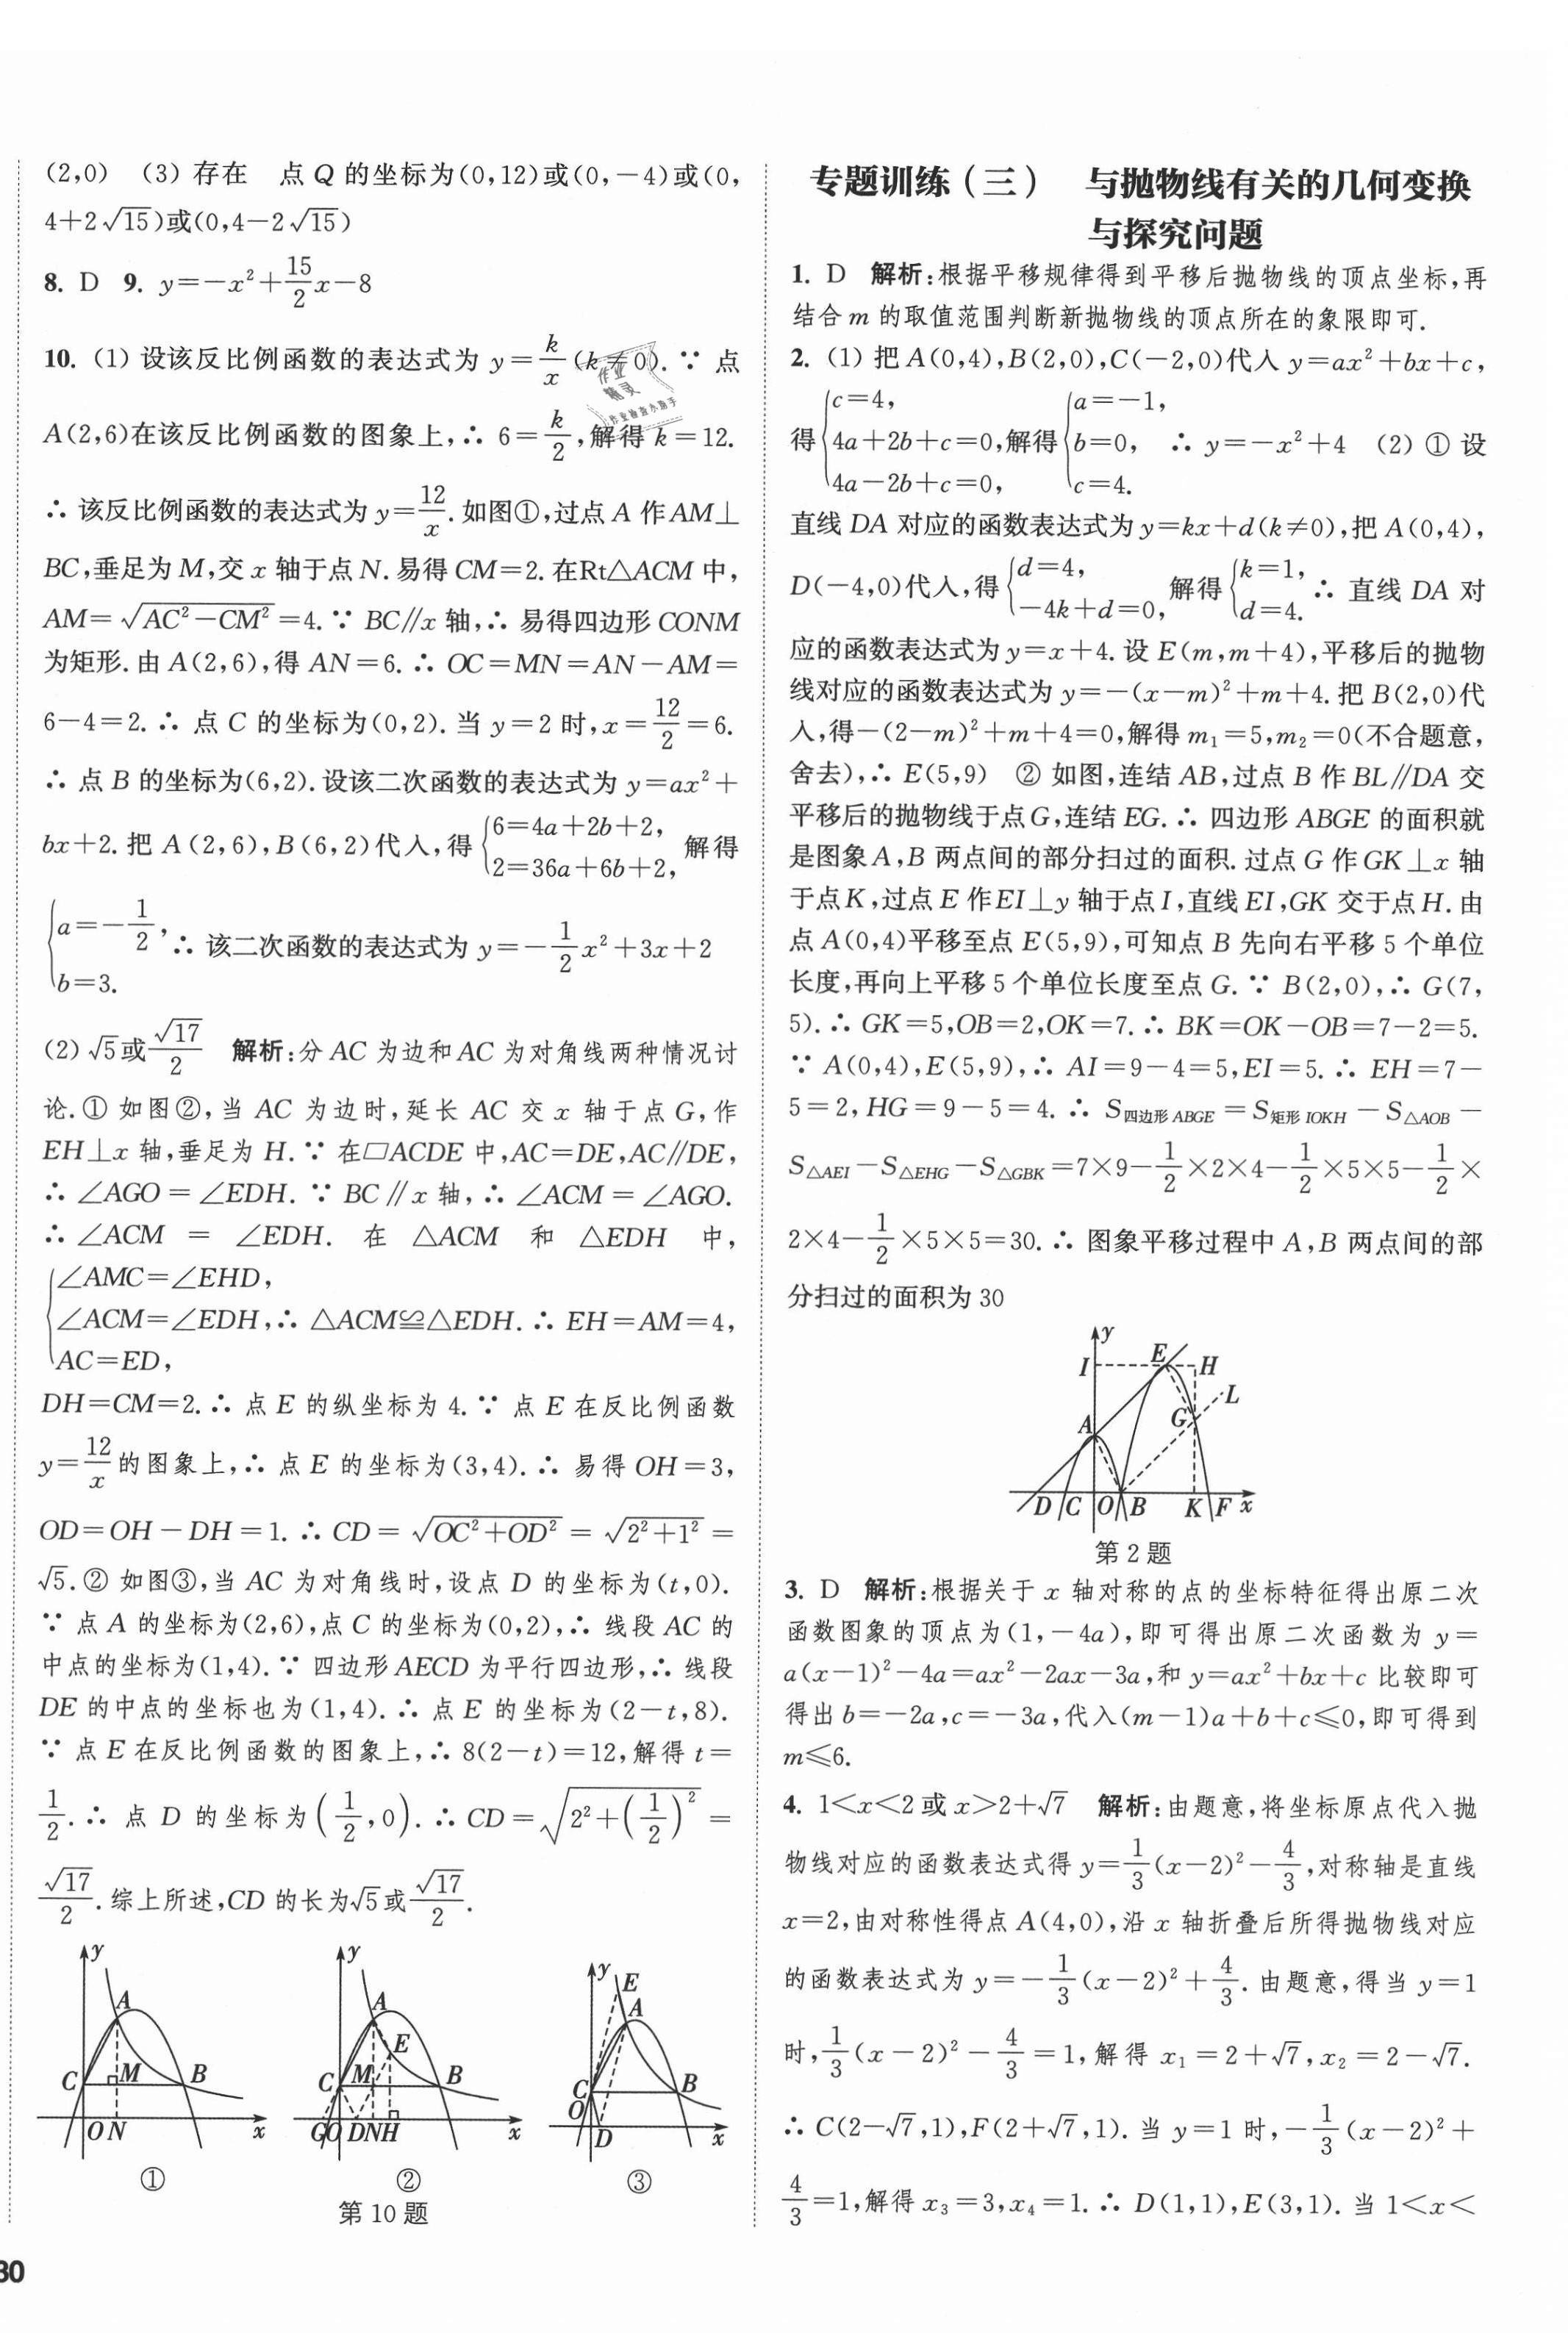 (2,0) (3) 存在 点 Q 的坐标为(0,12)或(0,-4)或(0,
4+2√15)或(0,4-2√15)
8. D 9. y=-x²+15/2x-8
10. (1) 设该反比例函数的表达式为 y=k/x(k≠0). ∵ 点
A(2,6)在该反比例函数的图象上,∴ 6=k/2,解得 k=12.
∴ 该反比例函数的表达式为 y=12/x. 如图①,过点 A 作 AM⊥
BC,垂足为 M,交 x 轴于点 N. 易得 CM=2. 在Rt△ACM 中,
AM=√(AC²-CM²)=4. ∵ BC∥x 轴,∴ 易得四边形 CONM
为矩形. 由 A(2,6),得 AN=6. ∴ OC=MN=AN-AM=
6-4=2. ∴ 点 C 的坐标为(0,2). 当 y=2 时,x=12/2=6.
∴ 点 B 的坐标为(6,2). 设该二次函数的表达式为 y=ax²+
bx+2. 把 A(2,6),B(6,2)代入,得{6=4a+2b+2, 2=36a+6b+2, 解得
{a=-1/2, b=3. ∴ 该二次函数的表达式为 y=-1/2x²+3x+2
(2) √5或√17/2 解析:分 AC 为边和 AC 为对角线两种情况讨
论. ① 如图②,当 AC 为边时,延长 AC 交 x 轴于点 G,作
EH⊥x 轴,垂足为 H. ∵ 在▱ACDE 中,AC=DE,AC∥DE,
∴ ∠AGO=∠EDH. ∵ BC∥x 轴,∴ ∠ACM=∠AGO.
∴ ∠ACM = ∠EDH. 在 △ACM 和 △EDH 中,
{∠AMC=∠EHD,
∠ACM=∠EDH,∴ △ACM≌△EDH. ∴ EH=AM=4,
AC=ED,
DH=CM=2. ∴ 点 E 的纵坐标为 4. ∵ 点 E 在反比例函数
y=12/x的图象上,∴ 点 E 的坐标为(3,4). ∴ 易得 OH=3,
OD=OH-DH=1. ∴ CD=√(OC²+OD²)=√(2²+1²)=
√5. ② 如图③,当 AC 为对角线时,设点 D 的坐标为(t,0).
∵ 点 A 的坐标为(2,6),点 C 的坐标为(0,2),∴ 线段 AC 的
中点的坐标为(1,4). ∵ 四边形 AECD 为平行四边形,∴ 线段
DE 的中点的坐标也为(1,4). ∴ 点 E 的坐标为(2-t,8).
∵ 点 E 在反比例函数的图象上,∴ 8(2-t)=12,解得 t=
1/2. ∴ 点 D 的坐标为(1/2,0). ∴ CD=√(2²+(1/2)²)=
√17/2. 综上所述,CD 的长为√5或√17/2.
y A C M B O N x
①
y A E C M B G O D N H x
②
y E A C B O D x
③
第 10 题
30
专题训练(三) 与抛物线有关的几何变换
与探究问题
1. D 解析:根据平移规律得到平移后抛物线的顶点坐标,再
结合 m 的取值范围判断新抛物线的顶点所在的象限即可.
2. (1) 把 A(0,4),B(2,0),C(-2,0)代入 y=ax²+bx+c,
得{c=4, 4a+2b+c=0, 4a-2b+c=0, 解得{a=-1, b=0, c=4. ∴ y=-x²+4 (2) ① 设
直线 DA 对应的函数表达式为 y=kx+d(k≠0),把 A(0,4),
D(-4,0)代入,得{d=4, -4k+d=0, 解得{k=1, d=4. ∴ 直线 DA 对
应的函数表达式为 y=x+4. 设 E(m,m+4),平移后的抛物
线对应的函数表达式为 y=-(x-m)²+m+4. 把 B(2,0)代
入,得-(2-m)²+m+4=0,解得 m₁=5,m₂=0(不合题意,
舍去),∴ E(5,9) ② 如图,连结 AB,过点 B 作 BL∥DA 交
平移后的抛物线于点 G,连结 EG. ∴ 四边形 ABGE 的面积就
是图象 A,B 两点间的部分扫过的面积. 过点 G 作 GK⊥x 轴
于点 K,过点 E 作 EI⊥y 轴于点 I,直线 EI,GK 交于点 H. 由
点 A(0,4)平移至点 E(5,9),可知点 B 先向右平移 5 个单位
长度,再向上平移 5 个单位长度至点 G. ∵ B(2,0),∴ G(7,
5). ∴ GK=5,OB=2,OK=7. ∴ BK=OK-OB=7-2=5.
∵ A(0,4),E(5,9),∴ AI=9-4=5,EI=5. ∴ EH=7-
5=2,HG=9-5=4. ∴ S四边形ABGE=S矩形IOKH-S△AOB-
S△AEI-S△EHG-S△GBK=7×9-1/2×2×4-1/2×5×5-1/2×
2×4-1/2×5×5=30. ∴ 图象平移过程中 A,B 两点间的部
分扫过的面积为 30
y I E H L G A D C O B K F x
第 2 题
3. D 解析:根据关于 x 轴对称的点的坐标特征得出原二次
函数图象的顶点为(1,-4a),即可得出原二次函数为 y=
a(x-1)²-4a=ax²-2ax-3a,和 y=ax²+bx+c 比较即可
得出 b=-2a,c=-3a,代入(m-1)a+b+c≤0,即可得到
m≤6.
4. 1<x<2 或 x>2+√7 解析:由题意,将坐标原点代入抛
物线对应的函数表达式得 y=1/3(x-2)²-4/3,对称轴是直线
x=2,由对称性得点 A(4,0),沿 x 轴折叠后所得抛物线对应
的函数表达式为 y=-1/3(x-2)²+4/3. 由题意,得当 y=1
时,1/3(x-2)²-4/3=1,解得 x₁=2+√7,x₂=2-√7.
∴ C(2-√7,1),F(2+√7,1). 当 y=1 时,-1/3(x-2)²+
4/3=1,解得 x₃=3,x₄=1. ∴ D(1,1),E(3,1). 当 1<x<